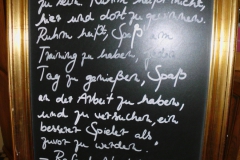 zu sein. Ruhm heißt nicht,
hier und dort zu gewinnen.
Ruhm heißt, Spaß am
Training zu haben, jeden
Tag zu genießen, Spaß
an der Arbeit zu haben,
und zu versuchen, ein
besserer Spieler als
zuvor zu werden.